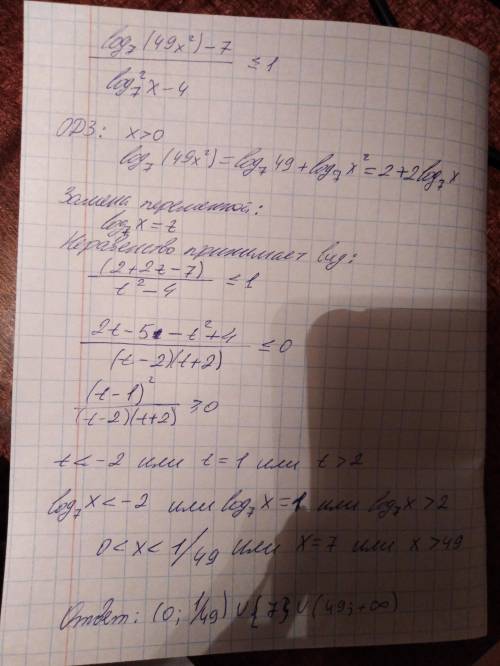 log₇(49x²) - 7
/ log₇²x - 4 ≤ 1
ОДЗ: x>0
log₇(49x²) = log₇49 + log₇x² = 2+2log₇x
Замена переменной:
log₇x = t
Неравенство принимает вид:
(2+2t-7) / t² - 4 ≤ 1
2t - 5 - t² + 4 / (t-2)(t+2) ≤ 0
(t-1)² / (t-2)(t+2) ≥ 0
t < -2 или t = 1 или t > 2
log₇x < -2 или log₇x = 1 или log₇x > 2
0 < x < 1/49 или x = 7 или x > 49
Ответ: (0; 1/49) ∪ {7} ∪ (49; +∞)